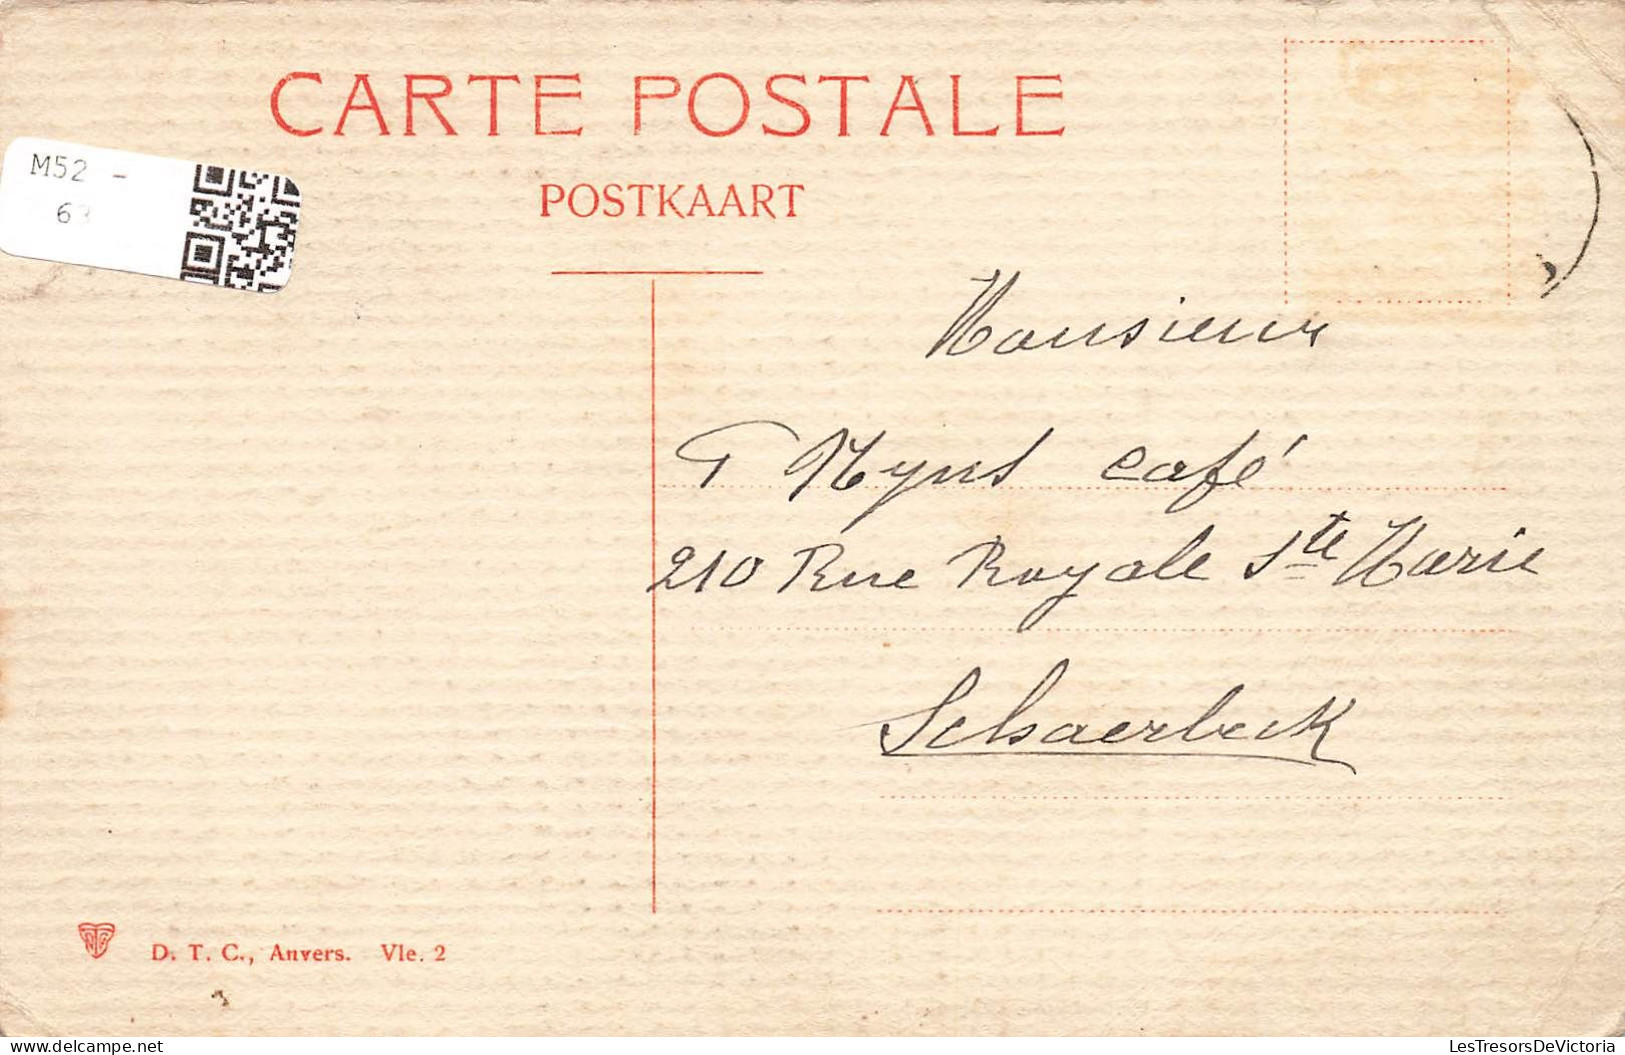 CARTE POSTALE
POSTKAART
M52 -
63
Monsieur
T Nyns café
210 Rue Royale Ste Marie
Schaerbeck
D. T. C., Anvers. Vle. 2
LesTresorsDeVictoria